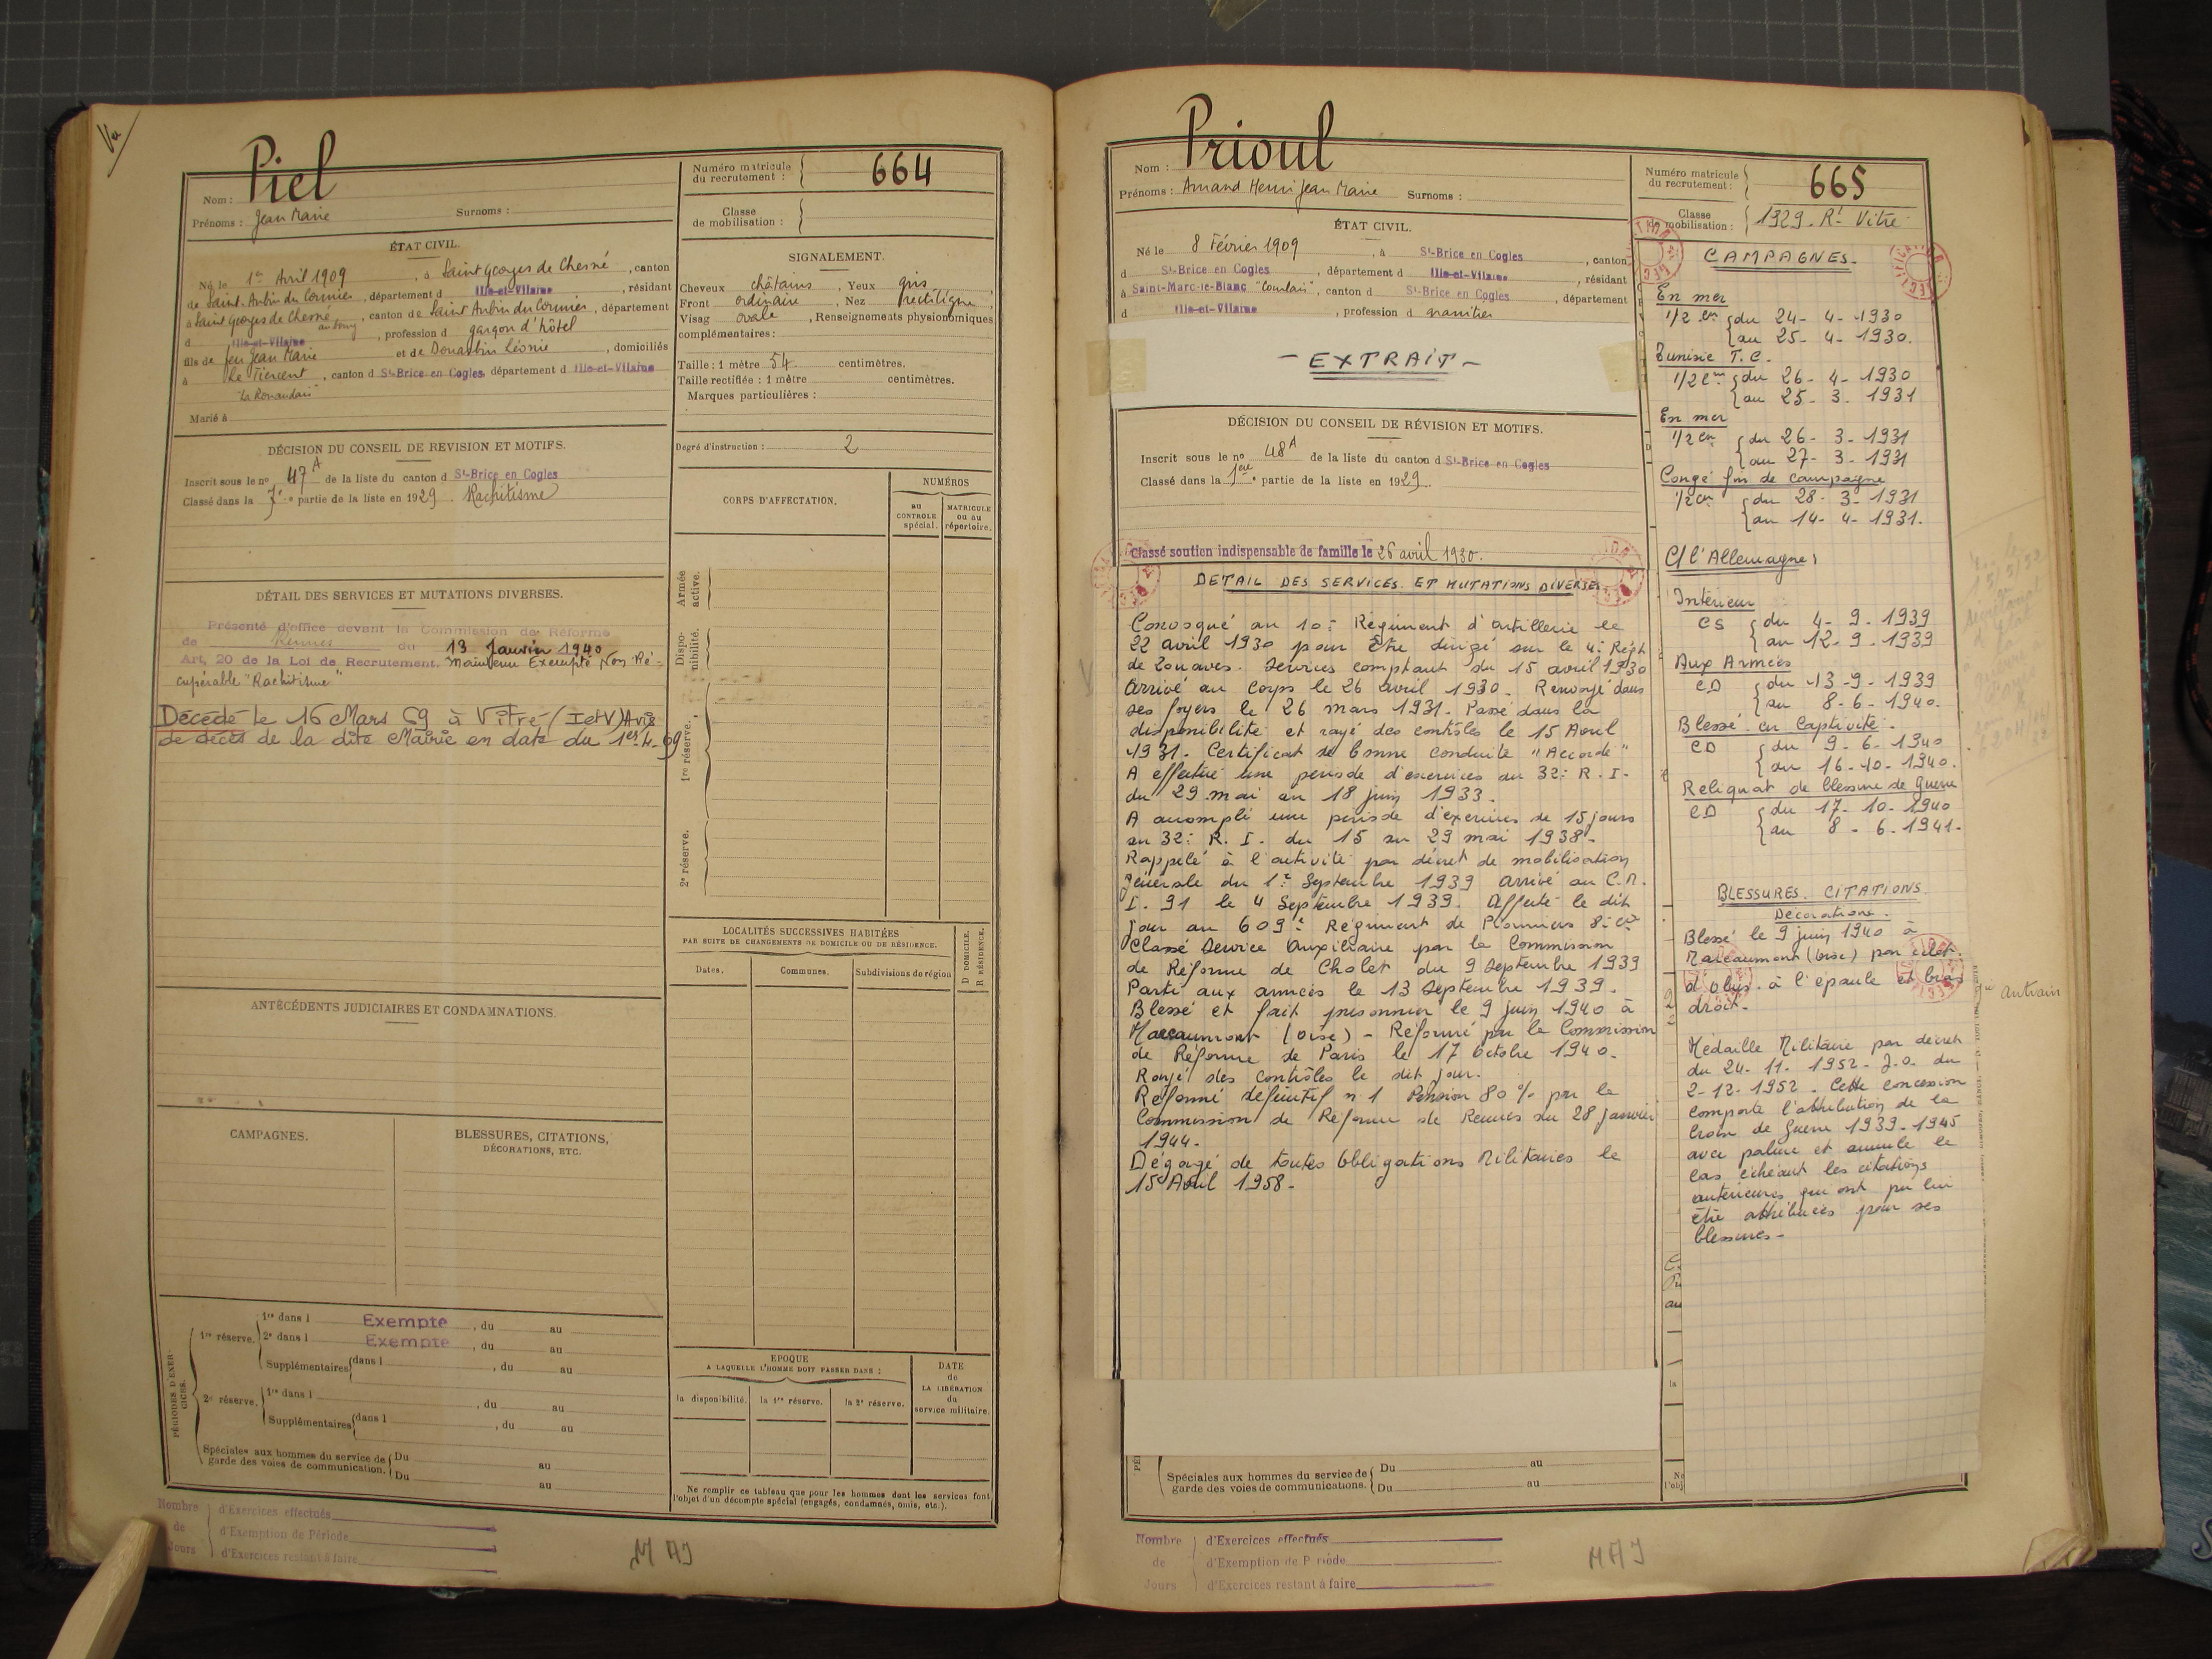 Vu
Nom : Piel
Prénoms : Jean Marie Surnoms :
Numéro matricule du recrutement : 664
Classe de mobilisation :
ÉTAT CIVIL.
Né le 1er Avril 1909, à Saint Georges de Chesné, canton
de Saint-Aubin du Cormier, département d Ille-et-Vilaine, résidant
à Saint Georges de Chesné, canton de Saint Aubin du Cormier, département
au bourg
d Ille-et-Vilaine, profession d garçon d'hôtel
fils de feu Jean Marie et de Douabin Léonie, domiciliés
à Le Tiercent, canton d St-Brice en Cogles, département d Ille-et-Vilaine
Marié à
SIGNALEMENT.
Cheveux châtains, Yeux gris
Front ordinaire, Nez rectiligne
Visag ovale, Renseignements physionomiques
complémentaires :
Taille : 1 mètre 54 centimètres.
Taille rectifiée : 1 mètre centimètres.
Marques particulières :
Degré d'instruction : 2
DÉCISION DU CONSEIL DE REVISION ET MOTIFS.
Inscrit sous le no 47 A de la liste du canton d St-Brice en Cogles
Classé dans la 7e partie de la liste en 1929. Rachitisme
CORPS D'AFFECTATION.
NUMÉROS
au CONTROLE spécial.
MATRICULE ou au répertoire.
Armée active.
Disponibilité.
1re réserve.
2e réserve.
DÉTAIL DES SERVICES ET MUTATIONS DIVERSES.
Présenté d'office devant la Commission de Réforme
de Rennes du 13 Janvier 1940
Art, 20 de la Loi de Recrutement. Maintenu Exempté Non Ré-
cupérable "Rachitisme"
Décédé le 16 Mars 69 à Vitré (I et V) Avis
de décès de la dite Mairie en date du 1er-4-69
LOCALITÉS SUCCESSIVES HABITÉES
PAR SUITE DE CHANGEMENTS DE DOMICILE OU DE RÉSIDENCE.
Dates.
Communes.
Subdivisions de région
D DOMICILE.
R RÉSIDENCE.
ANTÉCÉDENTS JUDICIAIRES ET CONDAMNATIONS.
CAMPAGNES.
BLESSURES, CITATIONS,
DÉCORATIONS, ETC.
PÉRIODES D'EXERCICES.
1re réserve.
1re dans l Exempté, du au
2e dans l Exempté, du au
Supplémentaires dans l , du au
2e réserve.
1re dans l , du au
Supplémentaires dans l , du au
Spéciales aux hommes du service de
garde des voies de communication.
Du au
Du au
EPOQUE
A LAQUELLE L'HOMME DOIT PASSER DANS :
la disponibilité.
la 1re réserve.
la 2e réserve.
DATE
de
LA LIBÉRATION
du
service militaire.
Ne remplir ce tableau que pour les hommes dont les services font
l'objet d'un décompte spécial (engagés, condamnés, omis, etc.).
Nombre de Jours
d'Exercices effectués
d'Exemption de Période
d'Exercices restant à faire
MAJ
Nom : Prioul
Prénoms : Amand Henri Jean Marie Surnoms :
Numéro matricule du recrutement : 665
Classe de mobilisation : 1929. Rt Vitré
ÉTAT CIVIL.
Né le 8 Février 1909, à St-Brice en Cogles, canton
d St-Brice en Cogles, département d Ille-et-Vilaine, résidant
à Saint-Marc-le-Blanc, canton d St-Brice en Cogles, département
d Ille-et-Vilaine, profession d granitier
- EXTRAIT -
DÉCISION DU CONSEIL DE RÉVISION ET MOTIFS.
Inscrit sous le no 48 A de la liste du canton d St-Brice en Cogles
Classé dans la 1ere partie de la liste en 1929.
Classé soutien indispensable de famille le 26 avril 1930.
DETAIL DES SERVICES ET MUTATIONS DIVERSES
Convoqué au 10e Régiment d'artillerie le
22 avril 1930 pour être dirigé sur le 4e Régt
de Zouaves. Services comptant du 15 avril 1930
Arrivé au Corps le 26 avril 1930. Renvoyé dans
ses foyers le 26 mars 1931. Passé dans la
disponibilité et rayé des contrôles le 15 Avril
1931. Certificat de bonne conduite "Accordé"
A effectué une période d'exercices au 32e R.I.
du 29 mai au 18 juin 1933.
A accompli une période d'exercices de 15 jours
au 32e R.I. du 15 au 29 mai 1938.
Rappelé à l'activité par décret de mobilisation
générale du 1er Septembre 1939 arrivé au C.M.
I. 91 le 4 Septembre 1939. Affecté le dit
jour au 609e Régiment de Pionniers 8e Cie
Classé Service Auxiliaire par la Commission
de Réforme de Cholet du 9 Septembre 1939
Parti aux armées le 13 Septembre 1939.
Blessé et fait prisonnier le 9 juin 1940 à
(Oise) - Réformé par la Commission
de Réforme de Paris le 17 Octobre 1940.
Rayé des contrôles le dit jour.
Réformé définitif n°1 Pension 80 % par la
Commission de Réforme de Rennes du 28 janvier
1944.
Dégagé de toutes Obligations Militaires le
15 Avril 1958.
CAMPAGNES.
En mer
1/2 cn du 24-4-1930
au 25-4-1930.
Tunisie T.C.
1/2 cn du 26-4-1930
au 25-3-1931
En mer
1/2 cn du 26-3-1931
au 27-3-1931
Congé fin de campagne
1/2 cn du 28-3-1931
au 14-4-1931.
C/ l'Allemagne
Intérieur
CS du 4-9-1939
au 12-9-1939
Aux Armées
CD du 13-9-1939
au 8-6-1940.
Blessé en Captivité
CD du 9-6-1940
au 16-10-1940.
Reliquat de blessure de guerre
CD du 17-10-1940
au 8-6-1941.
BLESSURES. CITATIONS.
Décorations.
Blessé le 9 juin 1940 à
(Oise) par éclat
d'obus à l'épaule et bras
droit.
Antrain
Médaille Militaire par décret
du 24-11-1952. J.O. du
2-12-1952. Cette concession
comporte l'attribution de la
Croix de Guerre 1939-1945
avec palme et annule le
cas échéant les citations
antérieures qui ont pu lui
être attribuées pour ses
blessures.
Spéciales aux hommes du service de
garde des voies de communications.
Du au
Du au
Nombre de Jours
d'Exercices effectués
d'Exemption de P riode
d'Exercices restant à faire
MAJ